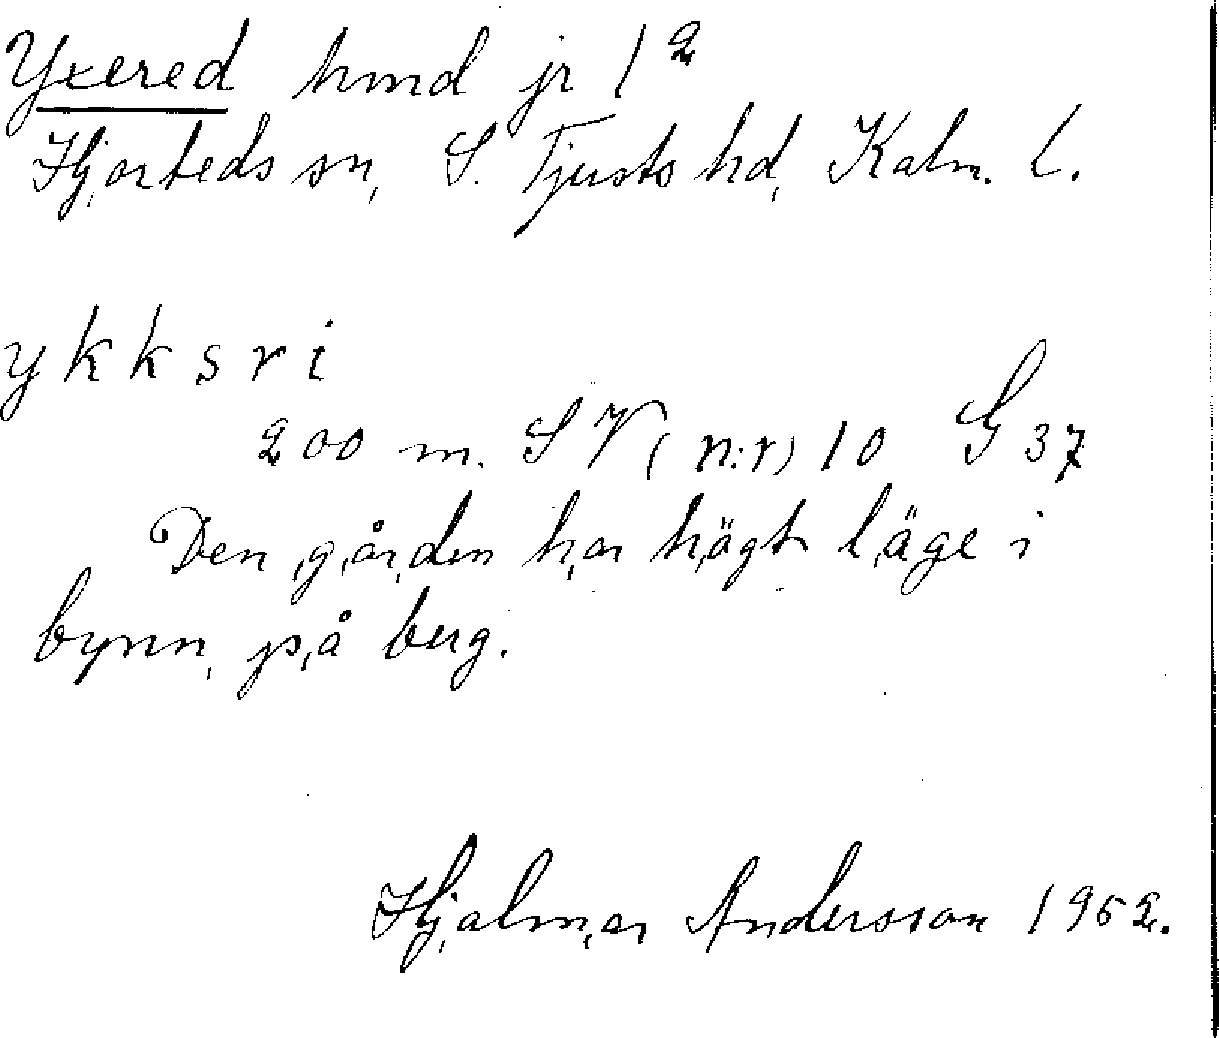 Yxered hmd jr 1²
Hjorteds sn, S. Tjusts hd, Kalm. l.
ykksri
200 m. SV (n:r) 10 G 37
Den gården har högt läge i
bynn, på berg.
Hjalmar Andersson 1952.